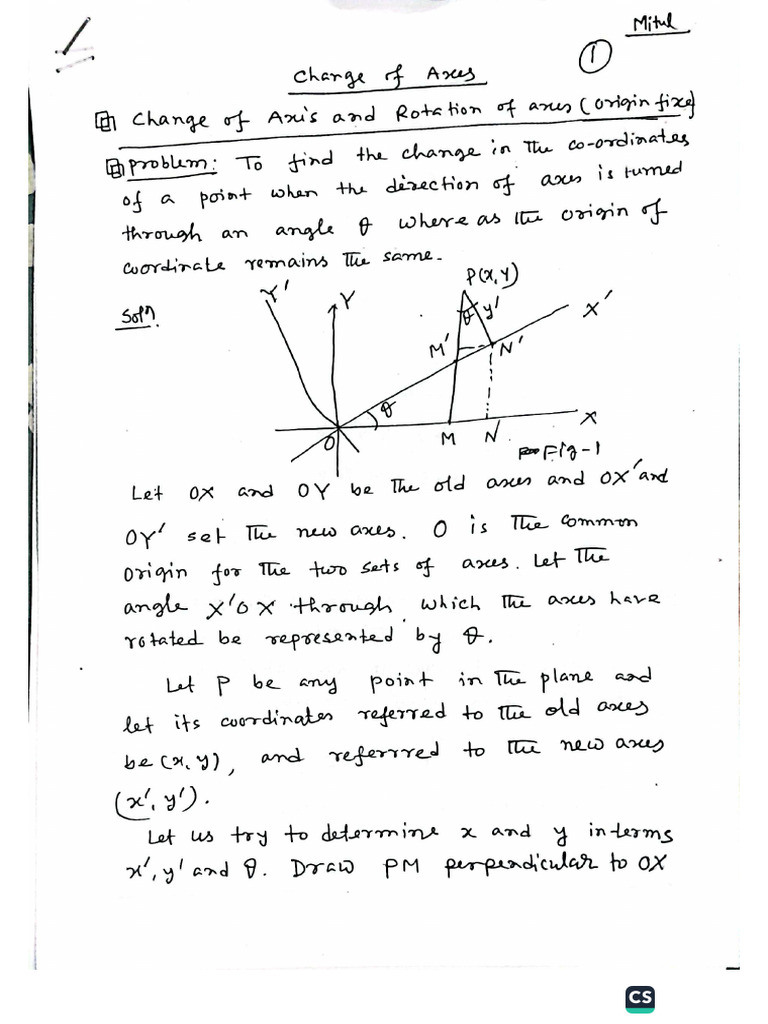 Mitul
1
Change of Axes
Change of Axis and Rotation of axes (origin fixe)
Problem: To find the change in the co-ordinates
of a point when the direction of axes is turned
through an angle θ where as the origin of
coordinate remains the same.
Solⁿ.
Y'
Y
P(x, y)
θ
y'
X'
M'
N'
θ
O
M
N
X
Fig-1
Let OX and OY be the old axes and OX' and
OY' set the new axes. O is the common
origin for the two sets of axes. Let the
angle X'OX through which the axes have
rotated be represented by θ.
Let P be any point in the plane and
let its coordinates referred to the old axes
be (x, y), and referrred to the new axes
(x', y').
Let us try to determine x and y interms
x', y' and θ. Draw PM perpendicular to OX
CS